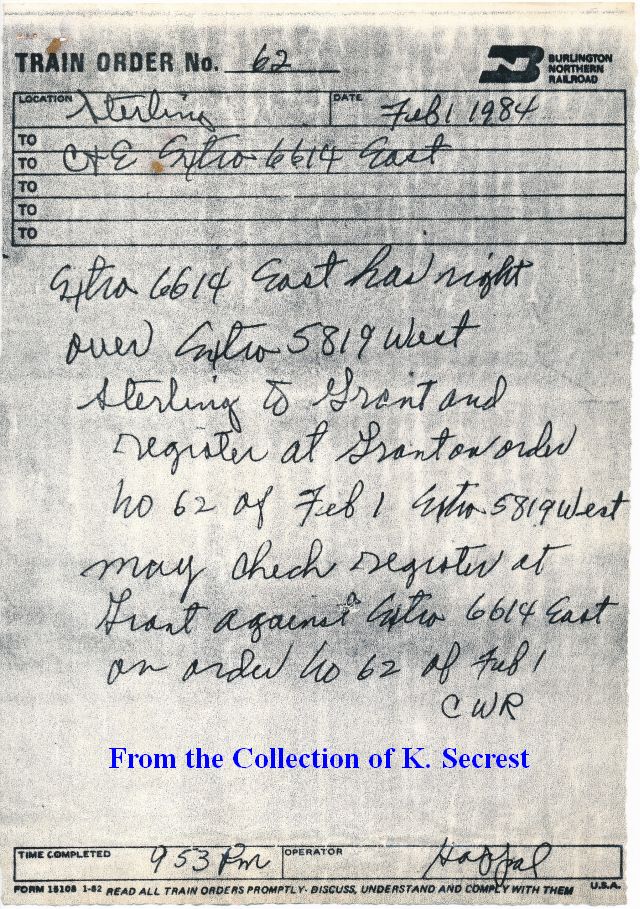 TRAIN ORDER No. 62
BURLINGTON
NORTHERN
RAILROAD
LOCATION Sterling DATE Feb 1 1984
TO
TO C+E Extra 6614 East
TO
TO
TO
Extra 6614 East has right
over Extra 5819 West
Sterling to Grant and
register at Grant on order
No 62 of Feb 1 Extra 5819 West
may check register at
Grant against Extra 6614 East
on order No 62 of Feb 1
CWR
From the Collection of K. Secrest
TIME COMPLETED 953 PM OPERATOR
FORM 15108 1-82 READ ALL TRAIN ORDERS PROMPTLY - DISCUSS, UNDERSTAND AND COMPLY WITH THEM U.S.A.